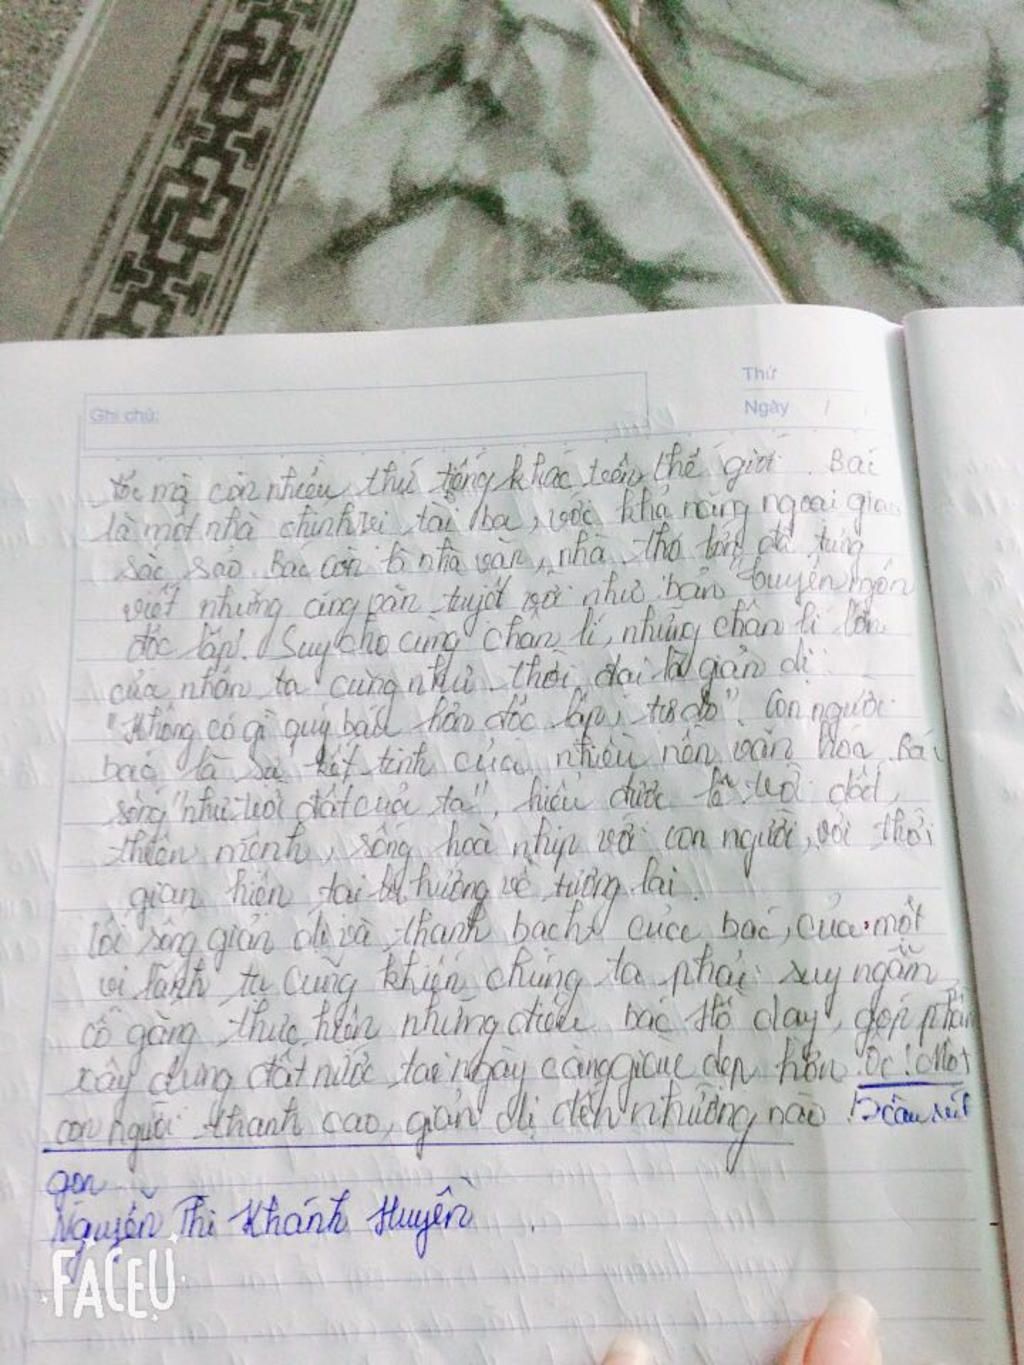 Thứ
Ghi chú:
Ngày / /
mà còn nhiều thứ tiếng khác trên thế giới. Bác
là một nhà chính trị tài ba, với khả năng ngoại giao
sắc sảo. Bác còn là nhà văn, nhà thơ lớn đã từng
viết những áng văn tuyệt vời như bản "tuyên ngôn
độc lập". Suy cho cùng chân lí, những chân lí lớn
của nhân ta cũng như thời đại là giản dị
"Không có gì quý báu hơn độc lập, tự do". Con người
bác là sự kết tinh của nhiều nền văn hóa. Bác
sống "như trời đất của ta", hiểu được lẽ trời đất,
thiên mệnh, sống hoà nhịp với con người, với thời
gian hiện tại hướng về tương lai.
Lối sống giản dị và thanh bạch của bác, của một
vị lãnh tụ cũng khiến chúng ta phải suy ngẫm,
cố gắng thực hiện những điều bác Hồ dạy, góp phần
xây dựng đất nước ta ngày càng giàu đẹp hơn. Ôi! Một
con người thanh cao, giản dị đến nhường nào! câu rút
gọn
Nguyễn Thị Khánh Huyền
FACEU